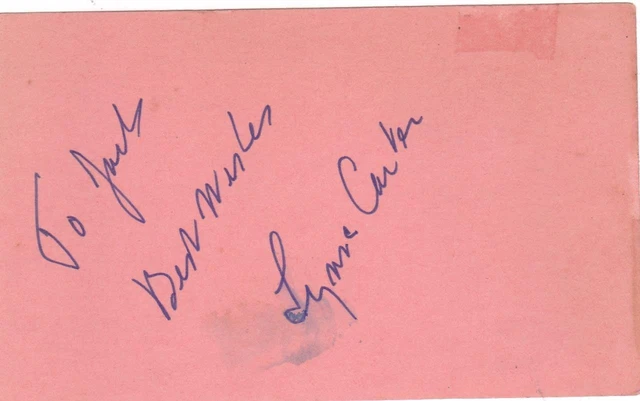 To Jack
Best Wishes
Lynne Carter